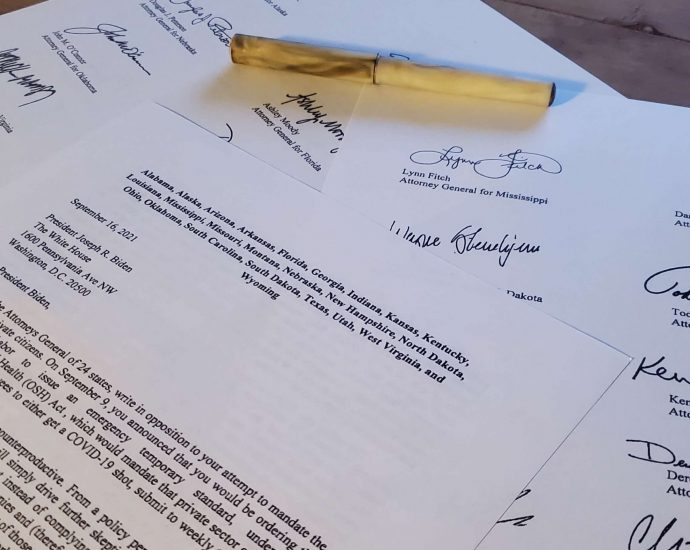 Alaska
Douglas J. Peterson
Attorney General for Nebraska
John M. O'Connor
Attorney General for Oklahoma
Virginia
Ashley Moody
Attorney General for Florida
Lynn Fitch
Lynn Fitch
Attorney General for Mississippi
Dakota
Attor
Tod
Attor
Ken
Ken
Attor
Der
Attor
Alabama, Alaska, Arizona, Arkansas, Florida, Georgia, Indiana, Kansas, Kentucky,
Louisiana, Mississippi, Missouri, Montana, Nebraska, New Hampshire, North Dakota,
Ohio, Oklahoma, South Carolina, South Dakota, Texas, Utah, West Virginia, and
Wyoming
September 16, 2021
President Joseph R. Biden
The White House
1600 Pennsylvania Ave NW
Washington, D.C. 20500
President Biden,
Attorneys General of 24 states, write in opposition to your attempt to mandate the
private citizens. On September 9, you announced that you would be ordering the
to issue an emergency temporary standard, under
Health (OSH) Act, which would mandate that private sector
to either get a COVID-19 shot, submit to weekly
counterproductive. From a policy
simply drive further
instead of complying
and (therefore
of those